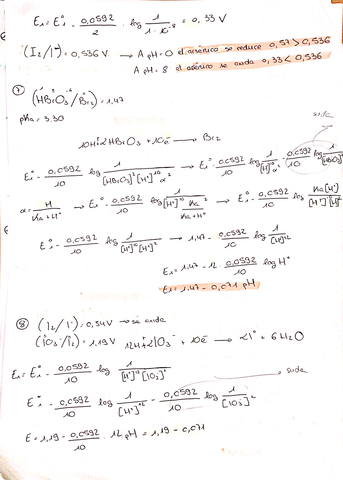 E₁ = E₁° - 0,0592/2 · log 1/(1·10⁻⁸) = 0,33 V
(I₂/I⁻) = 0,536 V → A pH=0 el arsénico se reduce 0,57 > 0,536
A pH=8 el arsénico se oxida 0,33 < 0,536
⑦ (HBrO₃/Br₂) = 1,47
pKa = 3.30
suda
10H⁺ 2HBrO₃ + 10e⁻ → Br₂
E₁° - 0,0592/10 log 1/([HBrO₃]² [H⁺]¹⁰ α²) → E₁° - 0,0592/10 log 1/([H]¹⁰ α²) - 0,0592/10 log 1/[HBrO₃]
α = H/(Ka+H⁺) → E₁° - 0,0592/10 log 1/([H⁺]¹⁰ Ka²/(Ka+H⁺)) → E₁° - 0,0592/10 log Ka[H⁺]/([H⁺][H]
E₁° - 0,0592/10 log 1/([H⁺]¹⁰ [H⁺]²) → 1,47 - 0,0592/10 log 1/[H]¹²
E₁ = 1,47 - 12 · 0,0592/10 log H⁺
E₁ = 1,47 - 0,071 pH
⑧ (I₂/I⁻) = 0,54V → se oxida
(IO₃⁻/I₂) = 1,19 V 12H + 2IO₃⁻ + 10e⁻ → 2I° + 6H₂O
E₁ = E₁° - 0,0592/10 log 1/([H⁺]¹² [IO₃]²)
suda
E₁° - 0,0592/10 log 1/[H⁺]¹² - 0,0592/10 log 1/[IO₃]²
E = 1,19 - 0,0592/10 · 12 pH = 1,19 - 0,071